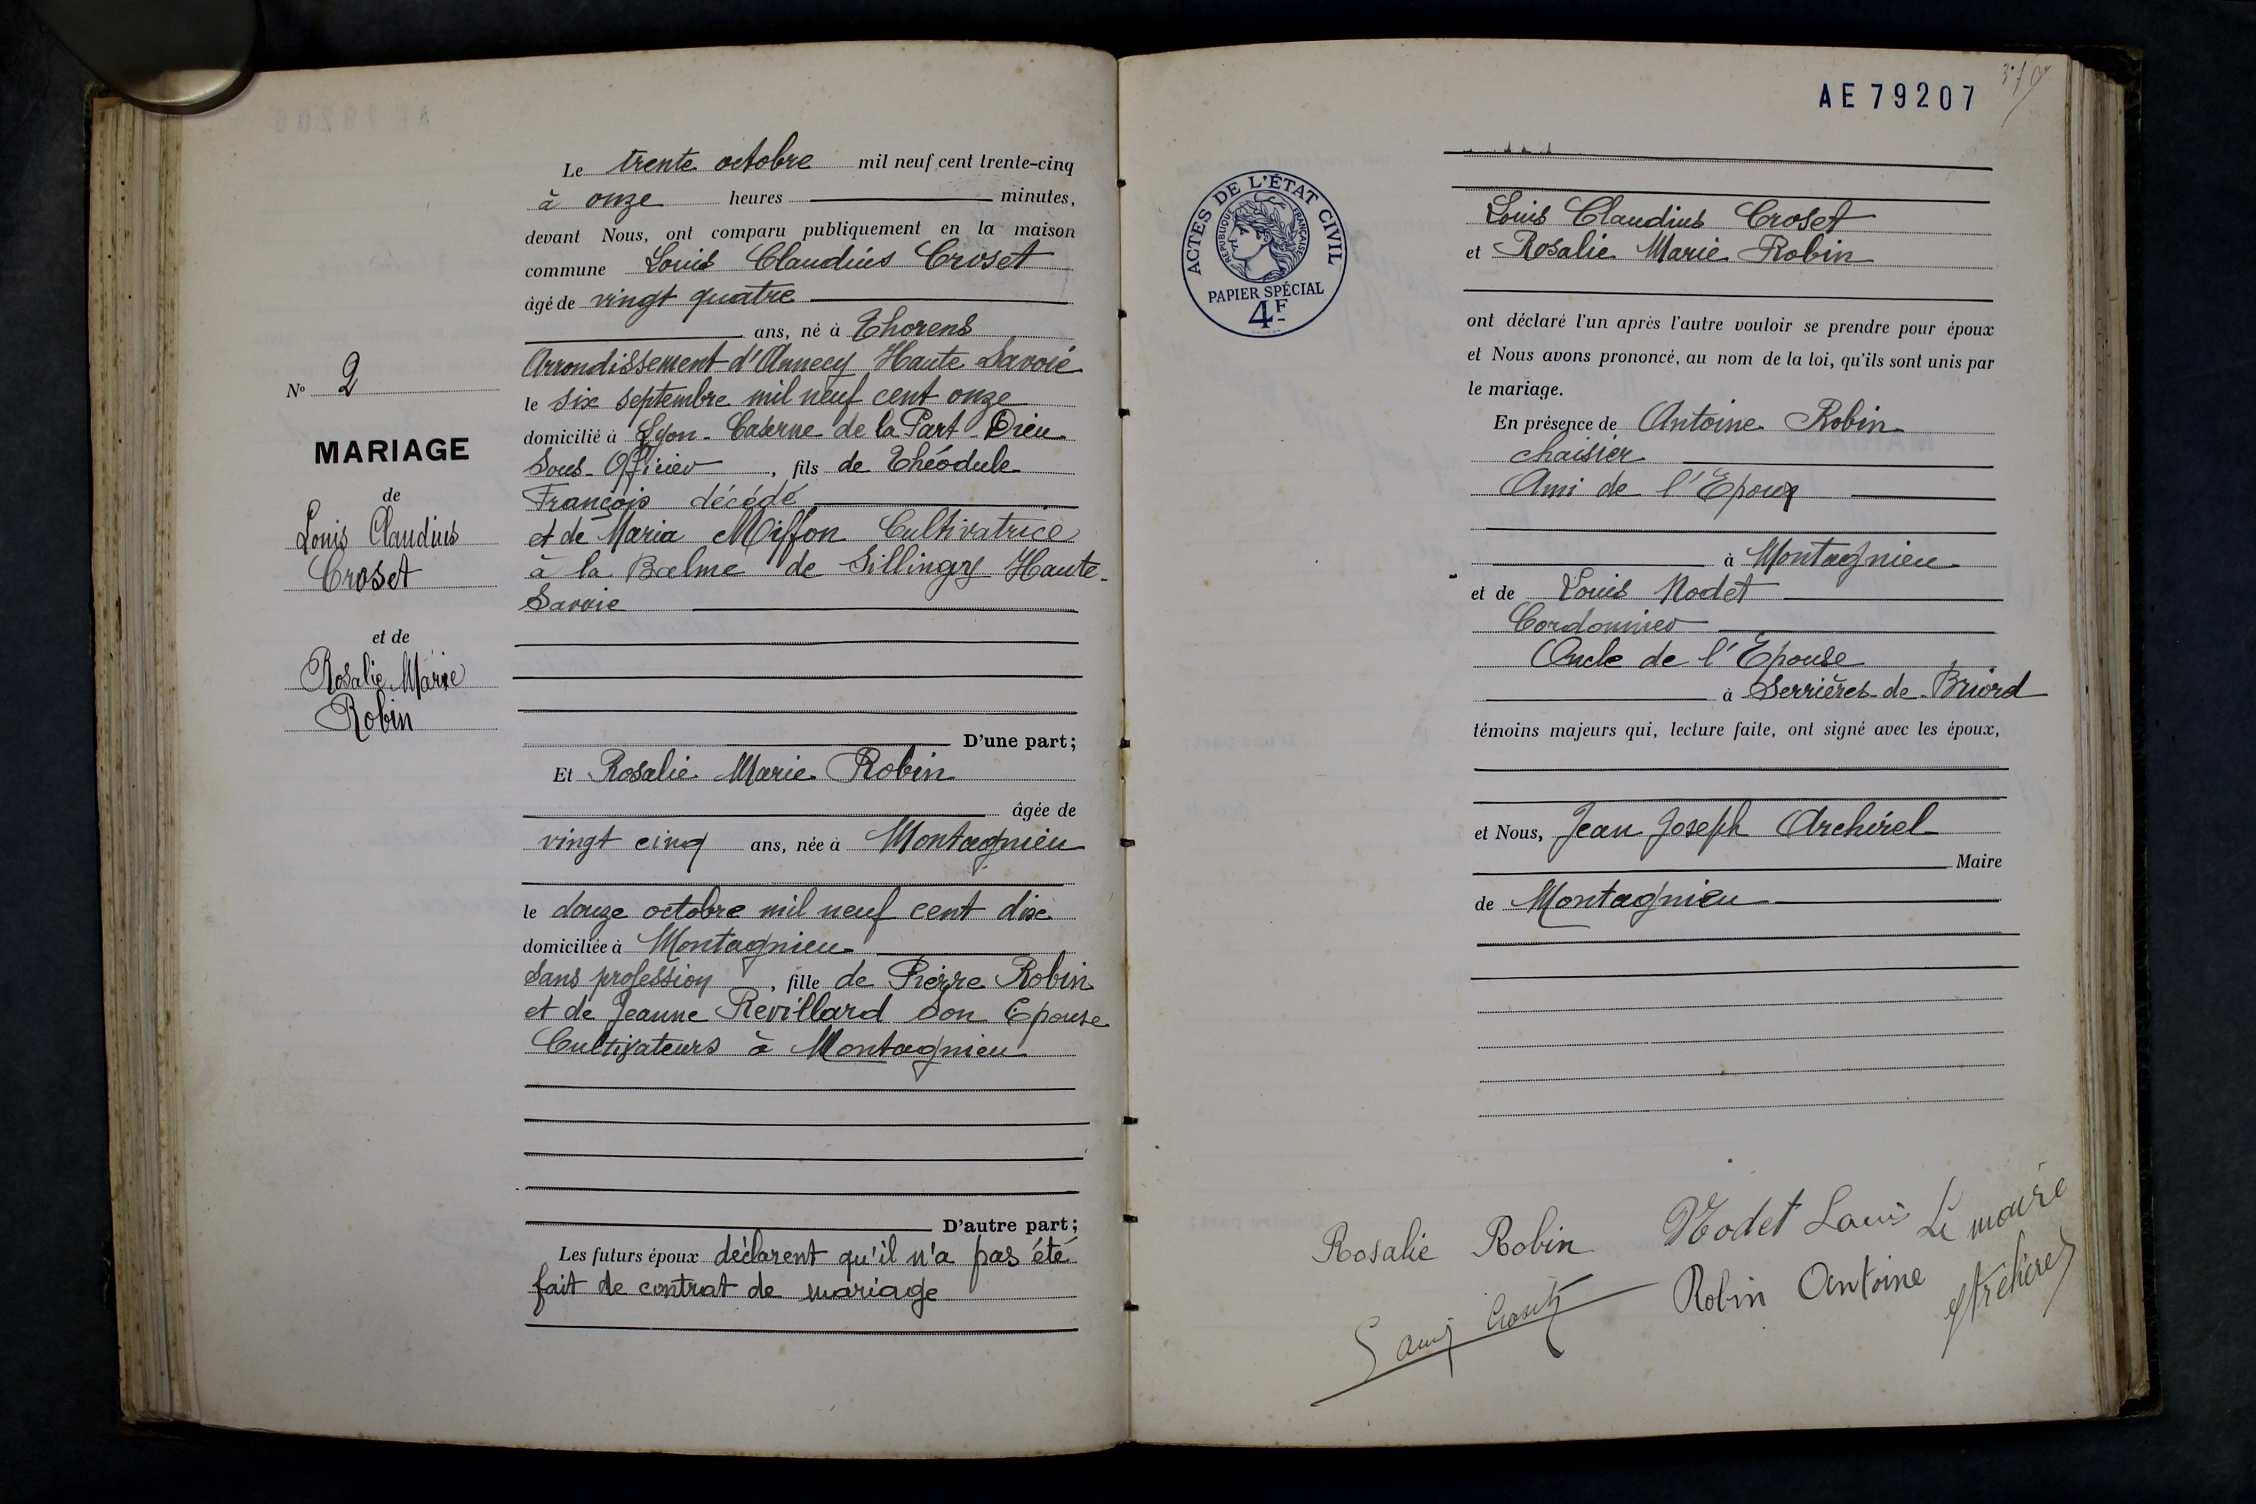 Le trente octobre mil neuf cent trente-cinq
à onze heures minutes,
devant Nous, ont comparu publiquement en la maison
commune Louis Claudius Croset
âgé de vingt quatre
ans, né à Thorens
Arrondissement d'Annecy Haute Savoie
le six septembre mil neuf cent onze
domicilié à Lyon - Caserne de la Part-Dieu
Sous-Officier, fils de Théodule
François décédé
et de Maria Miffon Cultivatrice
à la Balme de Sillingy Haute-
Savoie
D'une part;
Et Rosalie Marie Robin
âgée de
vingt cinq ans, née à Montagnieu
le douze octobre mil neuf cent dix
domiciliée à Montagnieu
sans profession, fille de Pierre Robin
et de Jeanne Revillard Son Epouse
Cultivateurs à Montagnieu
D'autre part;
Les futurs époux déclarent qu'il n'a pas été
fait de contrat de mariage
N° 2
MARIAGE
de
Louis Claudius
Croset
et de
Rosalie Marie
Robin
AE 79207
ACTES DE L'ÉTAT CIVIL
RÉPUBLIQUE FRANÇAISE
PAPIER SPÉCIAL
4F
Louis Claudius Croset
et Rosalie Marie Robin
ont déclaré l'un après l'autre vouloir se prendre pour époux
et Nous avons prononcé, au nom de la loi, qu'ils sont unis par
le mariage.
En présence de Antoine Robin
chaisier
Ami de l'Epoux
à Montagnieu
et de Louis Nodet
Cordonnier
Oncle de l'Epouse
à Serrières-de-Briord
témoins majeurs qui, lecture faite, ont signé avec les époux,
et Nous, Jean Joseph Archirel
Maire
de Montagnieu
Rosalie Robin Nodet Louis Le maire
Robin Antoine